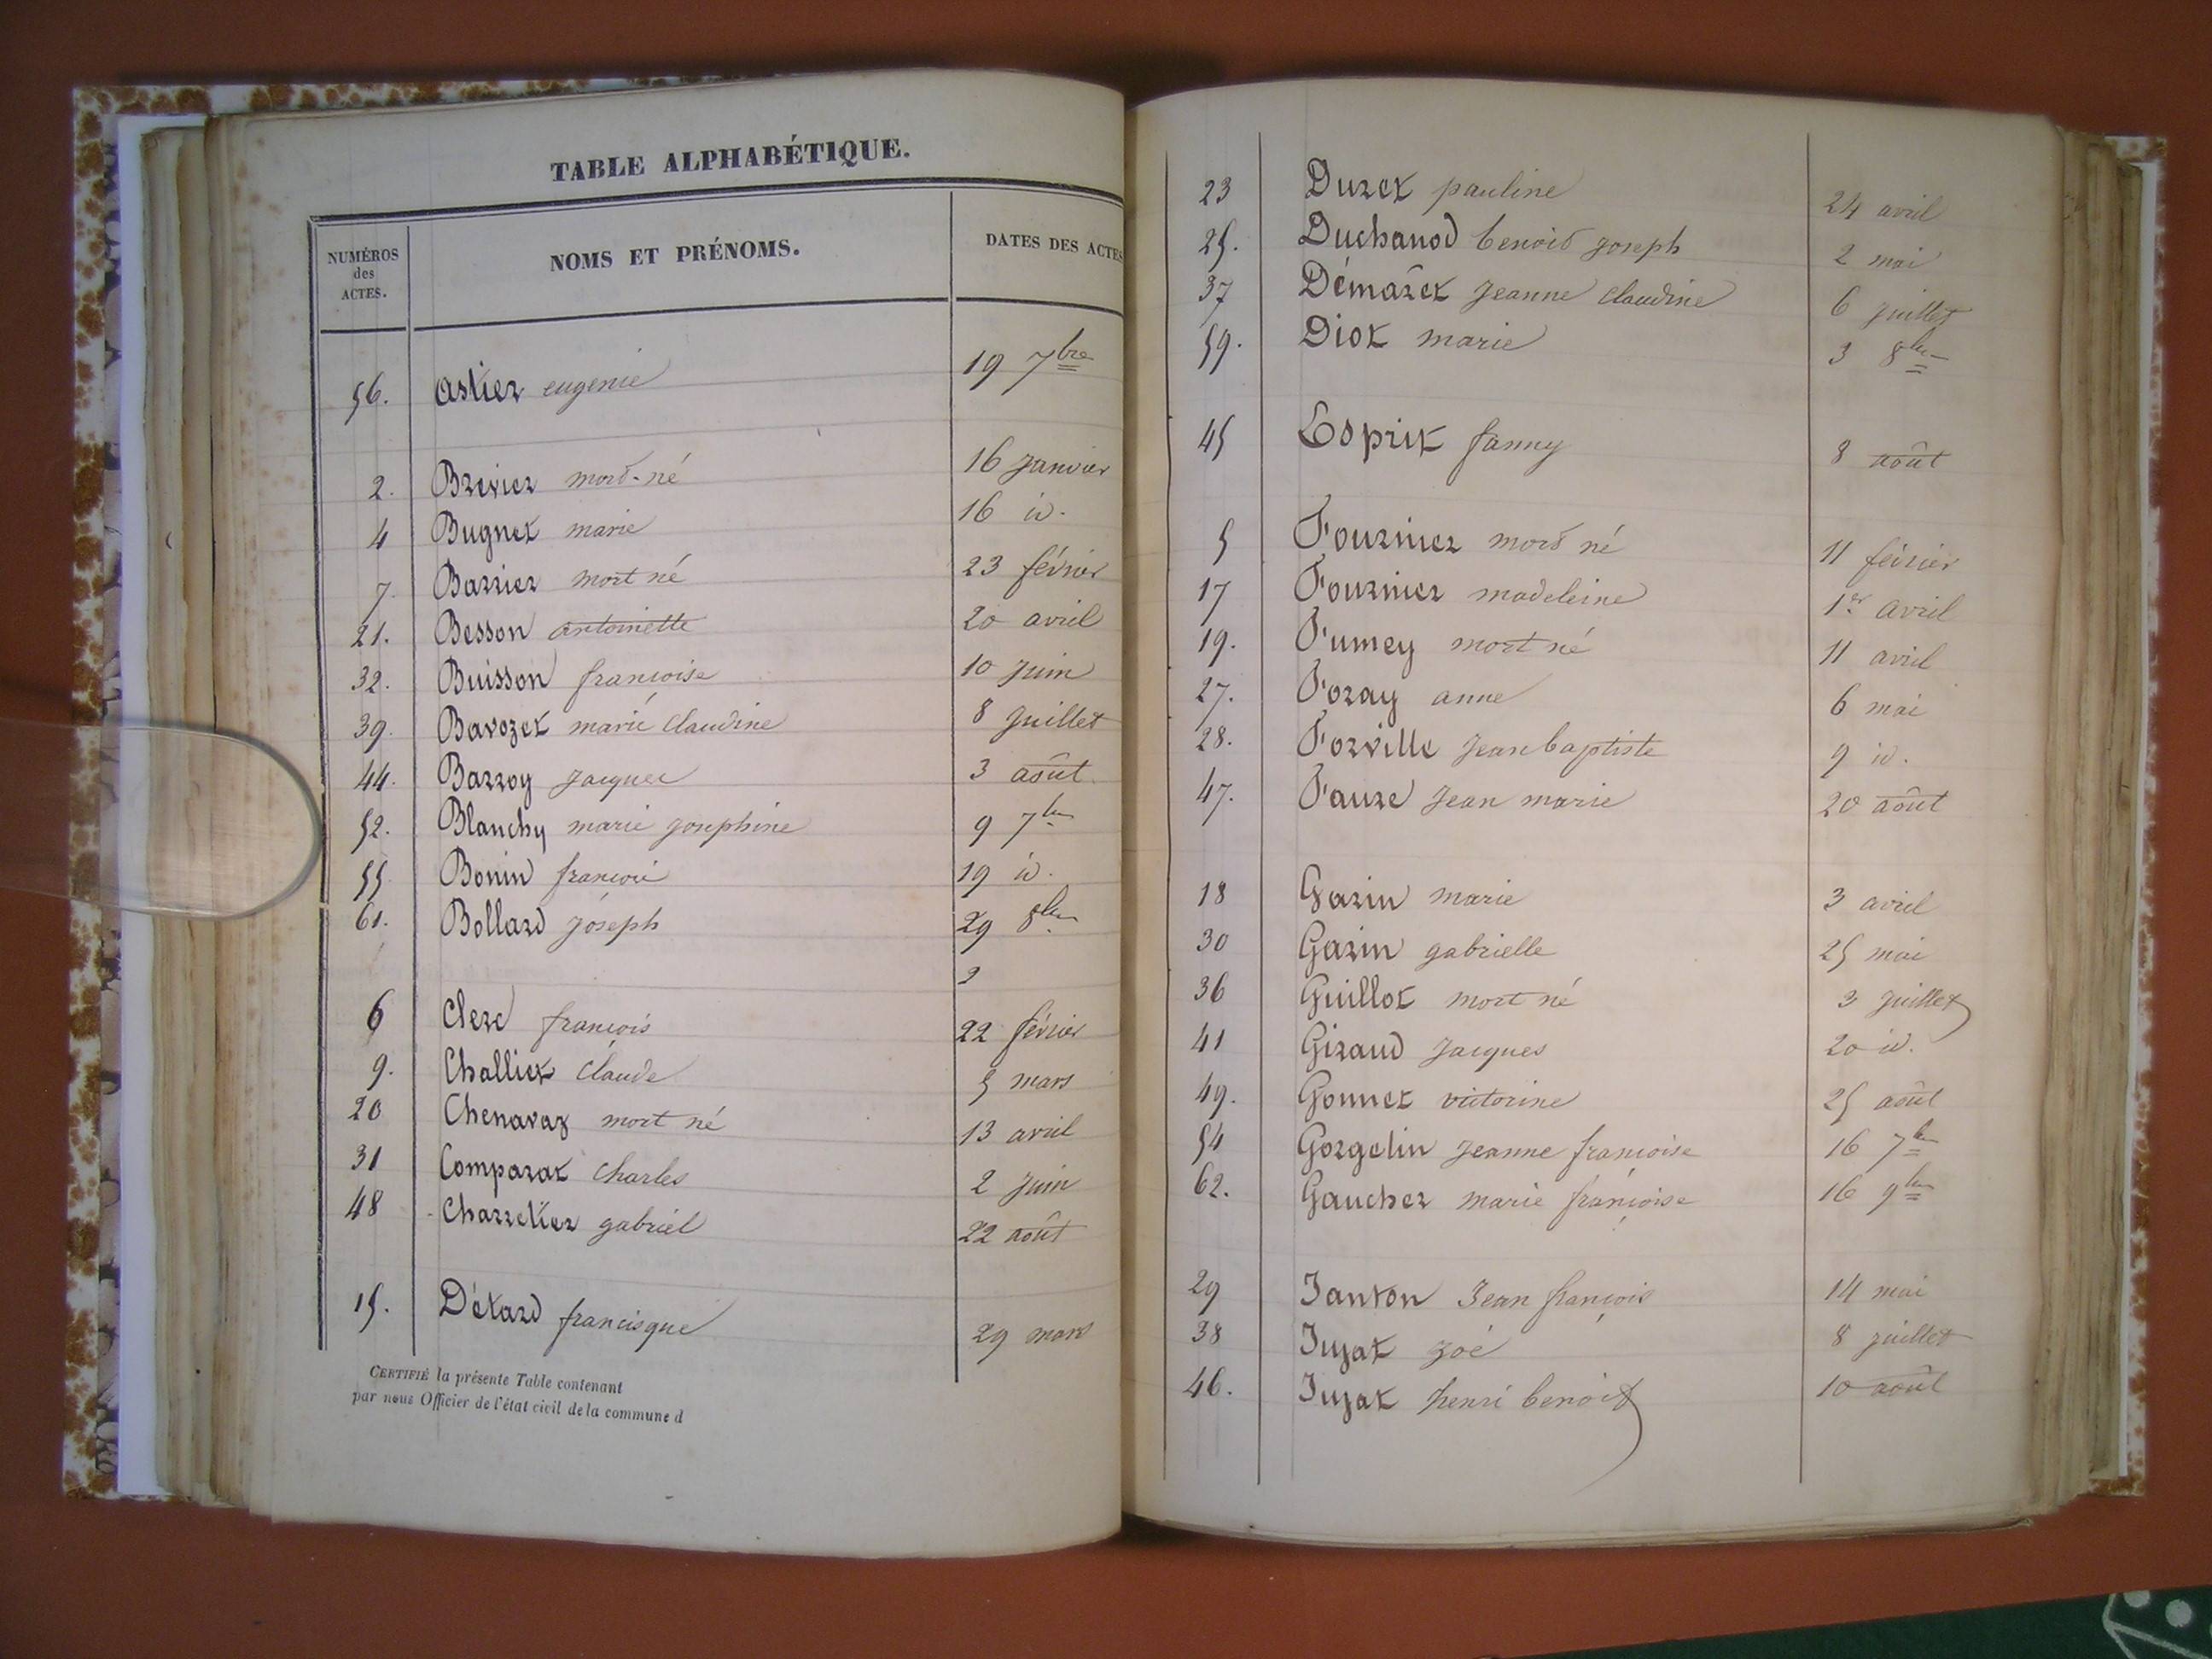 TABLE ALPHABÉTIQUE.
NUMÉROS des ACTES. NOMS ET PRÉNOMS. DATES DES ACTES
56. Astier eugenie 19 7bre
2. Brevier mort-né 16 Janvier
4 Bugnet marie 16 id.
7. Barrier mort né 23 février
21. Besson antoinette 20 avril
32. Buisson françoise 10 Juin
39. Bavozet marie Claudine 8 Juillet
44. Barroy Jacques 3 août
52. Blanchy marie josephine 9 7bre
55 Bonin françois 19 id.
61. Bollard Joseph 29 8bre
2
6 Clerc françois 22 février
9. Challiet Claude 5 mars
20 Chenavaz mort né 13 avril
31 Comparat Charles 2 Juin
48 Charretier gabriel 22 août
15. Détard francisque 29 mars
CERTIFIÉ la présente Table contenant
par nous Officier de l'état civil de la commune d
23 Duret pauline 24 avril
25. Duchanod benoit Joseph 2 mai
37 Démaret Jeanne Claudine 6 Juillet
59. Diot marie 3 8bre
45 Esprit fanny 8 août
5 Fournier mort né 11 février
17 Fournier madeleine 1er avril
19. Fumey mort né 11 avril
27. Foray anne 6 mai
28. Forville Jean baptiste 9 id.
47. Faure Jean marie 20 août
18 Garin marie 3 avril
30 Garin gabrielle 25 mai
36 Guillot mort né 3 Juillet
41 Giraud Jacques 20 id.
49. Gonnet victorine 25 août
54 Gorgelin Jeanne françoise 16 7bre
62. Gaucher marie françoise 16 9bre
29 Janton Jean françois 14 mai
38 Jujat zoé 8 juillet
46. Jujat henri benoit 10 août